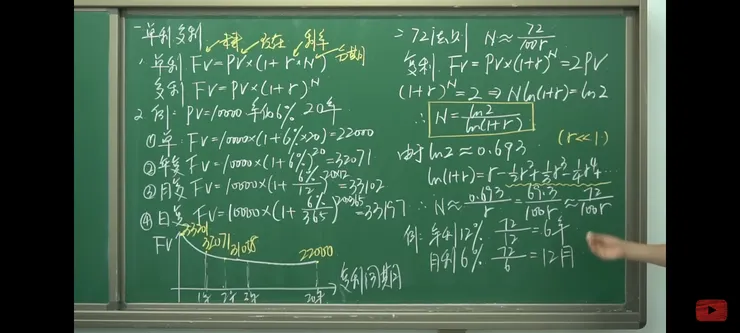 一 单利 复利
未来 现在 利率
1 单利 FV=PV×(1+r×N) 期
复利 FV=PV×(1+r)^N
2 例: PV=10000 年化6% 20年
① 单: FV=10000×(1+6%×20)=22000
② 年复 FV=10000×(1+6%)^20=32071
③ 月复 FV=10000×(1+6%/12)^20×12=33102
④ 日复 FV=10000×(1+6%/365)^20×365=33197
33201
FV 32071 31028 22000
1年 2年 3年 20年 复利周期
二 72法则 N≈72/100r
复利 FV=PV×(1+r)^N=2PV
(1+r)^N=2⇒Nln(1+r)=ln2
∴ N=ln2/ln(1+r)
由于 ln2≈0.693 (r<<1)
ln(1+r)=r-1/2r²+1/3r³-1/4r⁴…
∴ N≈0.693/r=69.3/100r≈72/100r
例: 年利12% 72/12=6年
月利6% 72/6=12月